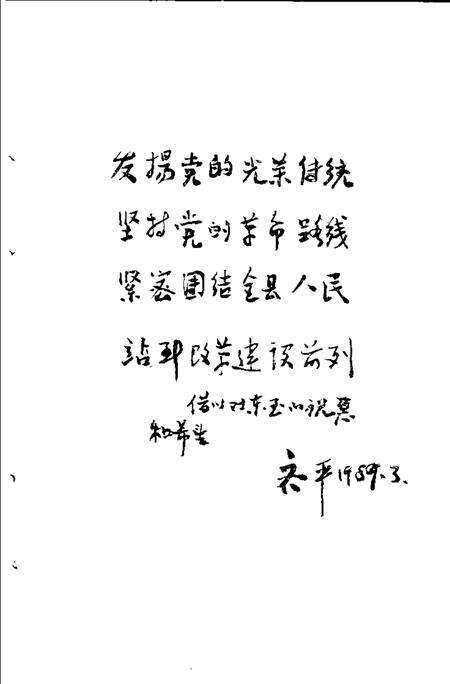 发揚党的光荣传统
坚持党的革命路线
紧密團结全县人民
站到改革建设前列
借以对东至的祝愿
和希望
平1989.3.